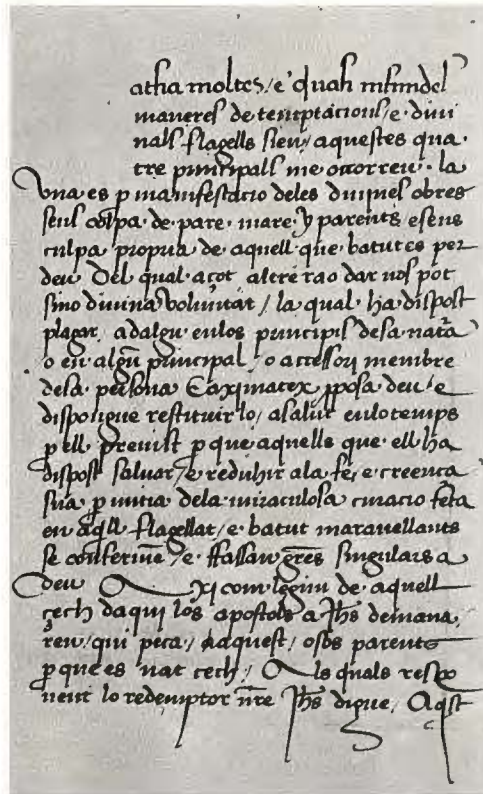 atha moltes / e quasi infinidel
maneres de temptacions / e diui
nals flagells sien / aquestes qua
tre principals me occorren · la
vna es p manifestacio deles diuines obres
sens colpa · de pare · mare · y parents e sens
culpa propria de aquell · que batut es per
deu · Del qual açot altre rao dar nos pot
sino diuina voluntat / la qual · ha dispost
plagar · adalgu en los principis desa nata
o en algun principal · o accessori membre
desa · persona E aximatex pposa deu / e
dispongue restituir lo / a salut en lo temps
p ell · preuist p que aquells que · ell ha
dispost saluar / e reduhir ala fe / e creença
sua p miția dela · miraculosa curacio feta
en aqll flagellat / e batut marauellants
se confermē / e ffassan gres singulars a
deu Axi com legim de aquell
çech daqui los apostols a Jhs demana
ren / qui peca / aquest / o sos parents
p que es nat çech / Als quals respo
nent lo redemptor nre Jhs digue / Aqst